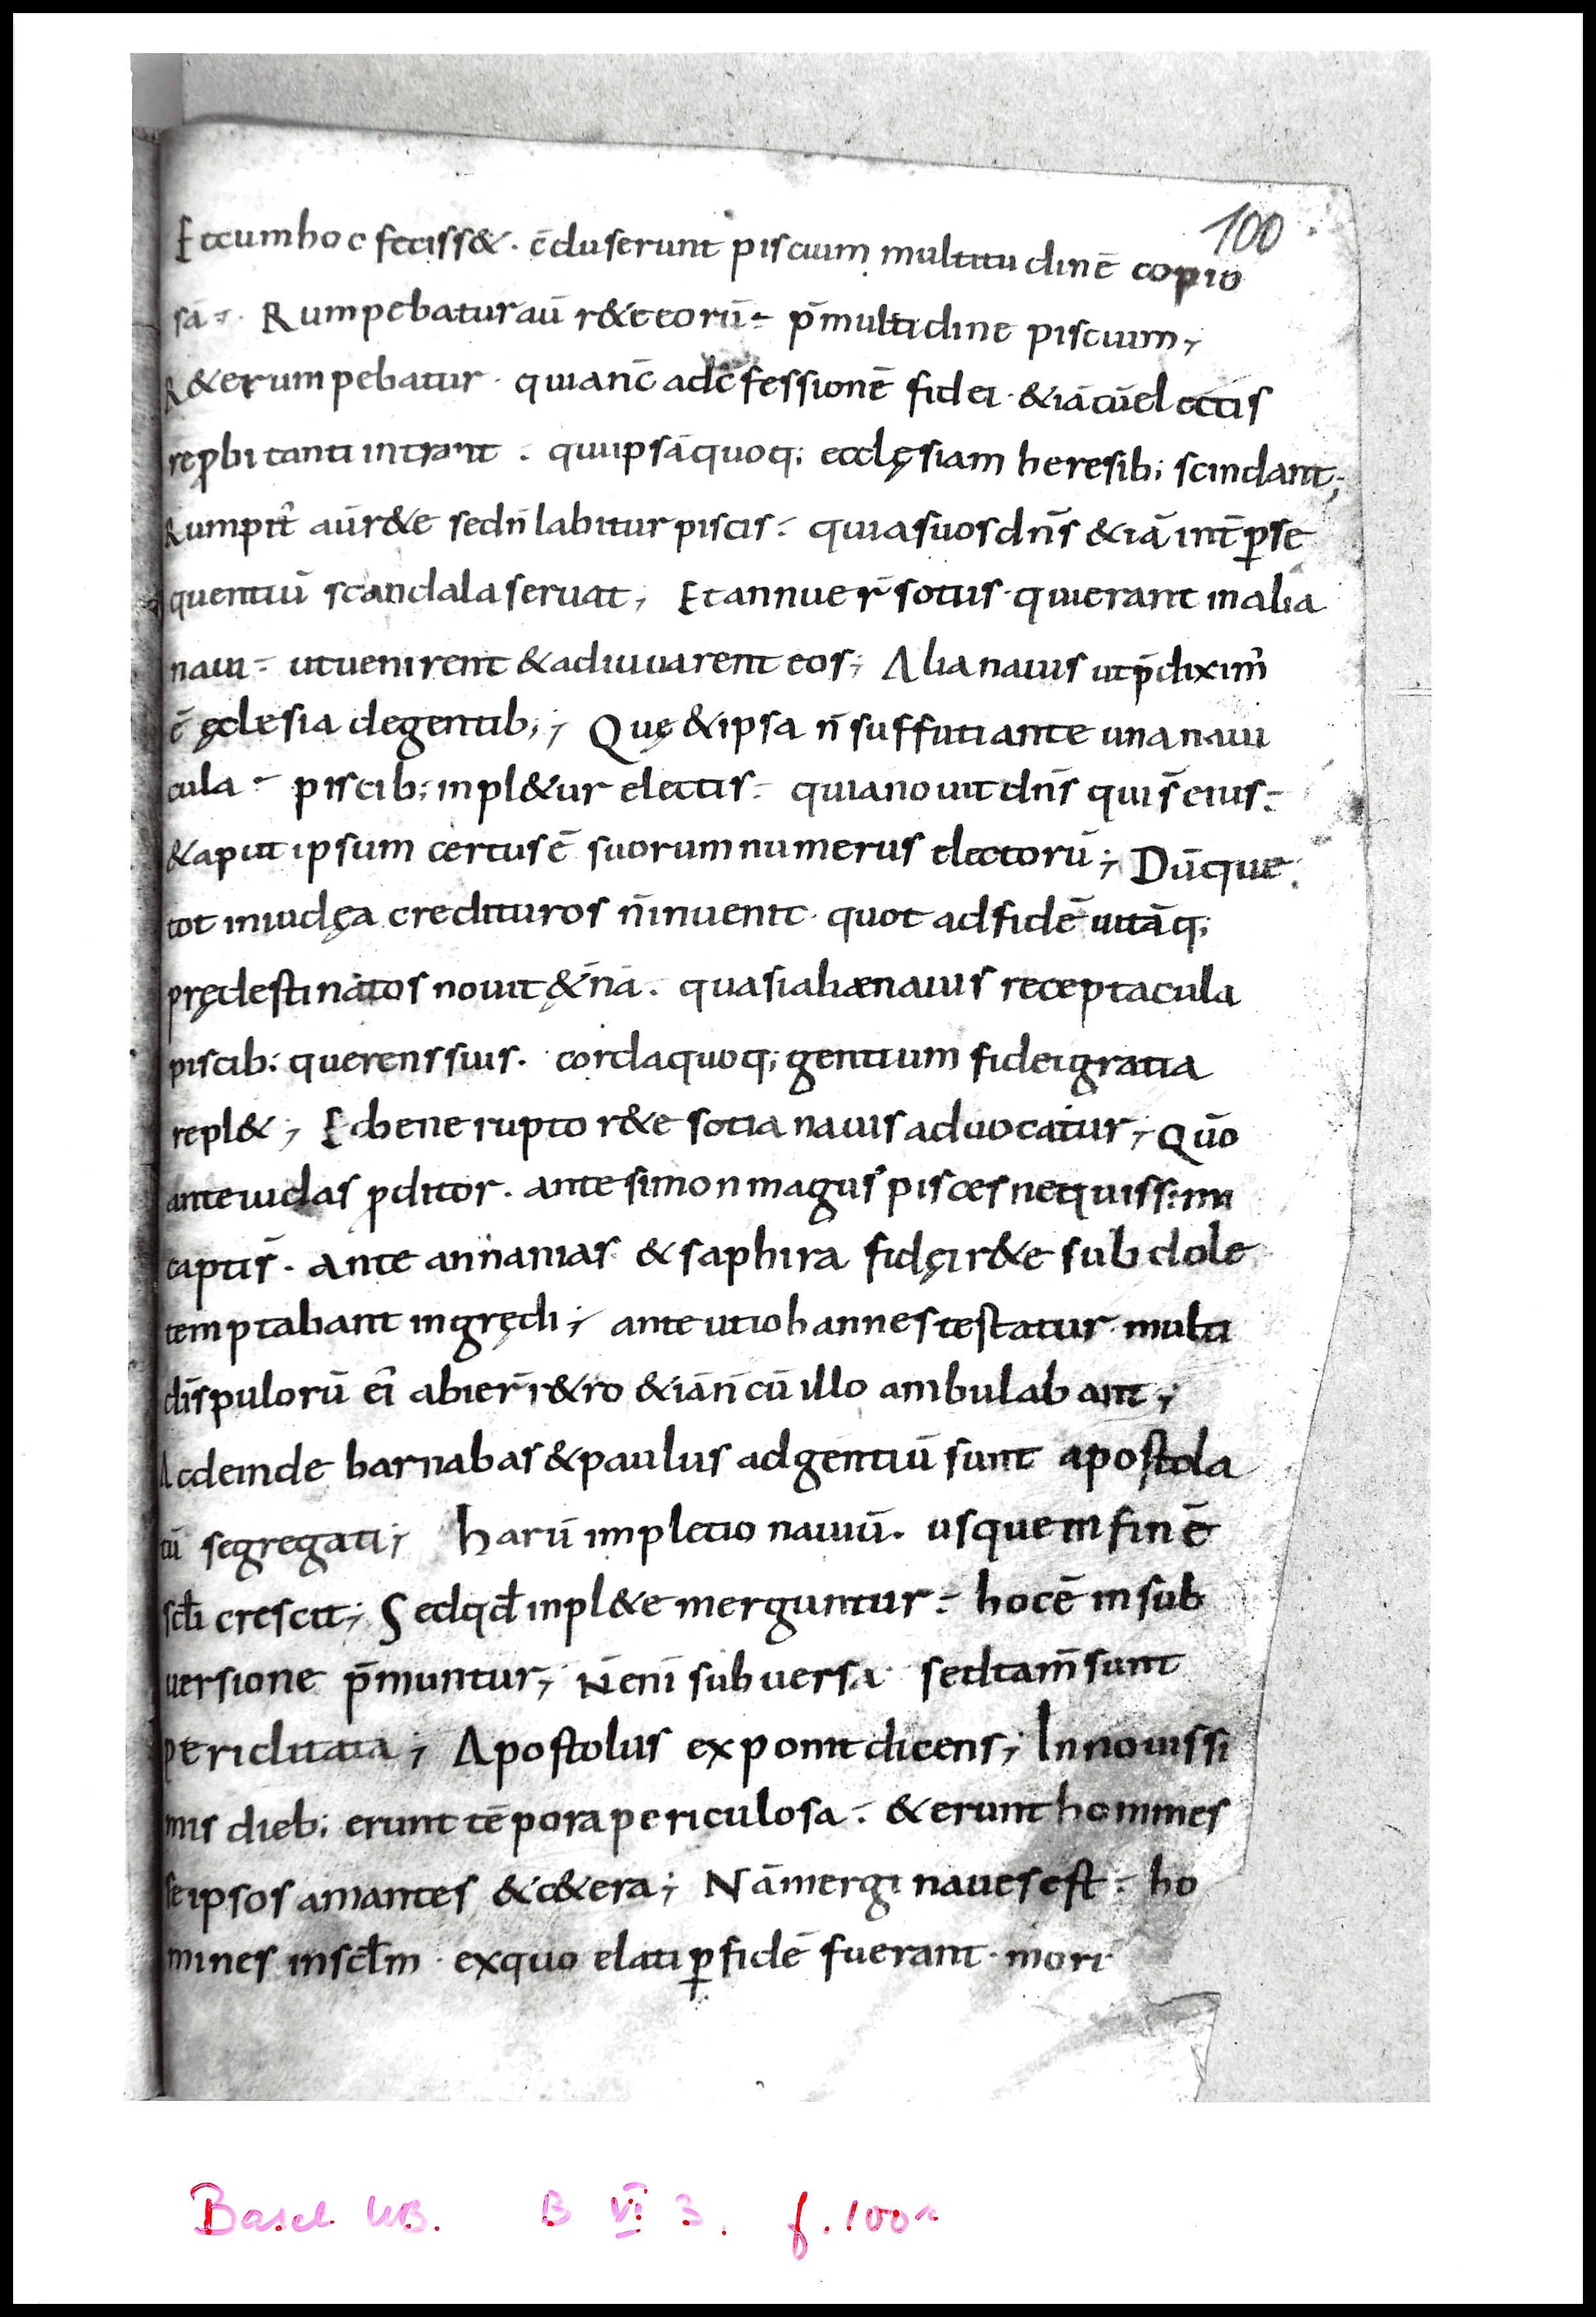 100
Et cum hoc feciss&. c̄cluserunt piscium multitudinē copio
sā. Rumpebatur aū r&e eorū. p̄ multidine piscium;
R&e rumpebatur. quia nc̄ ad c̄fessionē fidei. &iā cū electis
reprobi tanti intrant. qui ipsā quoq; ecclęsiam heresib; scindant;
Rumpit̉ aū r&e sed n̄ labitur piscis. quia suos dn̄s &iā int̄ perse
quentiū scandala seruat; Et annuer̄ sotiis. qui erant in alia
naui. ut uenirent & adiuuarent eos; Alia nauis ut p̄diximꝰ
ē ęclesia de gentib;; Quę & ipsa n̄ suffitiante una naui
cula. piscib; inpl&ur electis. quia nouit dn̄s qui s̄ eius.
& aput ipsum certus ē suorum numerus electorū; Dūque
tot in iudęa credituros n̄ inuenit. quot ad fidē uitāq;
prędestinatos nouit &̨n̄ā. quasi aliæ nauis receptacula
piscib; querens suis. corda quoq; gentium fidei gratia
repl&; Et bene rupto r&e sotia nauis aduocatur; Qūo
ante iudas proditor. ante simon magus pisces nequissimi
capti s̄. ante annanias & saphira fidęi r&e subdole
temptabant ingrędi; ante ut iohannes testatur multi
dis̄pulorū eỉ abier̄ r&ro &iā n̄ cū illo ambulabant;
Ac deinde barnabas & paulus ad gentiū sunt apostola
tū segregati; harū impletio nauiū. usque in finē
scl̄i crescit; Sed qd̄ inpl&e merguntur. hoc ē in sub
uersione p̄muntur; N̄ eni̅ subuersa. sed tam̄ sunt
periclitata; Apostolus exponit dicens; In nouissi
mis dieb; erunt tēpora periculosa. & erunt homines
se ipsos amantes & c&era; Nā mergi naues est. ho
mines in scl̄m. ex quo elati ꝑ fidē fuerant. mori
Basel UB. B VI 3. f. 100r